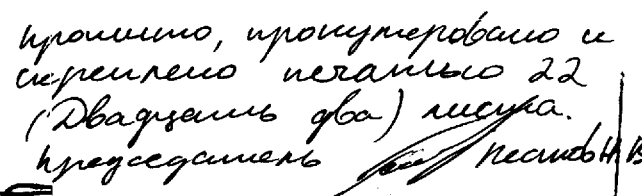 прошито, пронумеровано и
скреплено печатью 22
(Двадцать два) листа.
Председатель Песиков Н.В